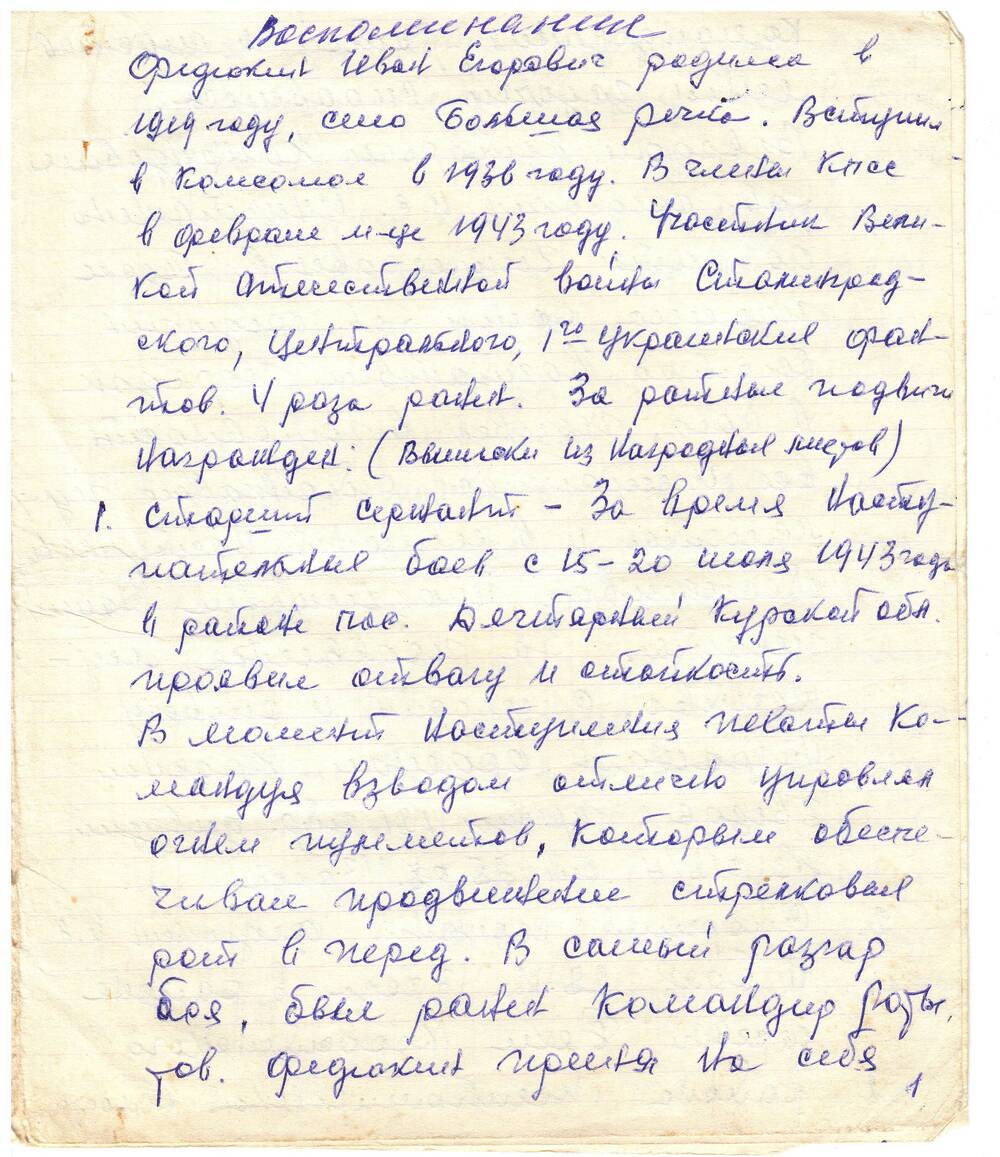 Воспоминания
Федюкин Иван Егорович родился в
1919 году, село Большая речка. Вступил
в Комсомол в 1936 году. В члены КПСС
в феврале м-це 1943 году. Участник Вели-
кой Отечественной войны Сталинград-
ского, Центрального, 1го украинских фрон-
тов. 4 раза ранен. За ратные подвиги
награжден: (Выписки из наградных листов)
1. Старший сержант - За время насту-
пательных боев с 15-20 июля 1943 года
в районе пос. Дегтярный Курской обл.
проявил отвагу и стойкость.
В момент наступления пехоты ко-
мандуя взводом отлично управлял
огнем пулеметов, которым обеспе-
чивал продвижение стрелковых
рот в перед. В самый разгар
боя, был ранен командир роты,
тов. Федюкин принял на себя
1